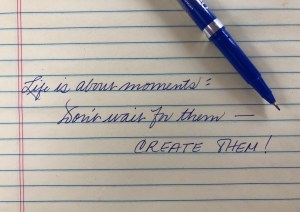 Life is about moments:
Don't wait for them —
CREATE THEM!